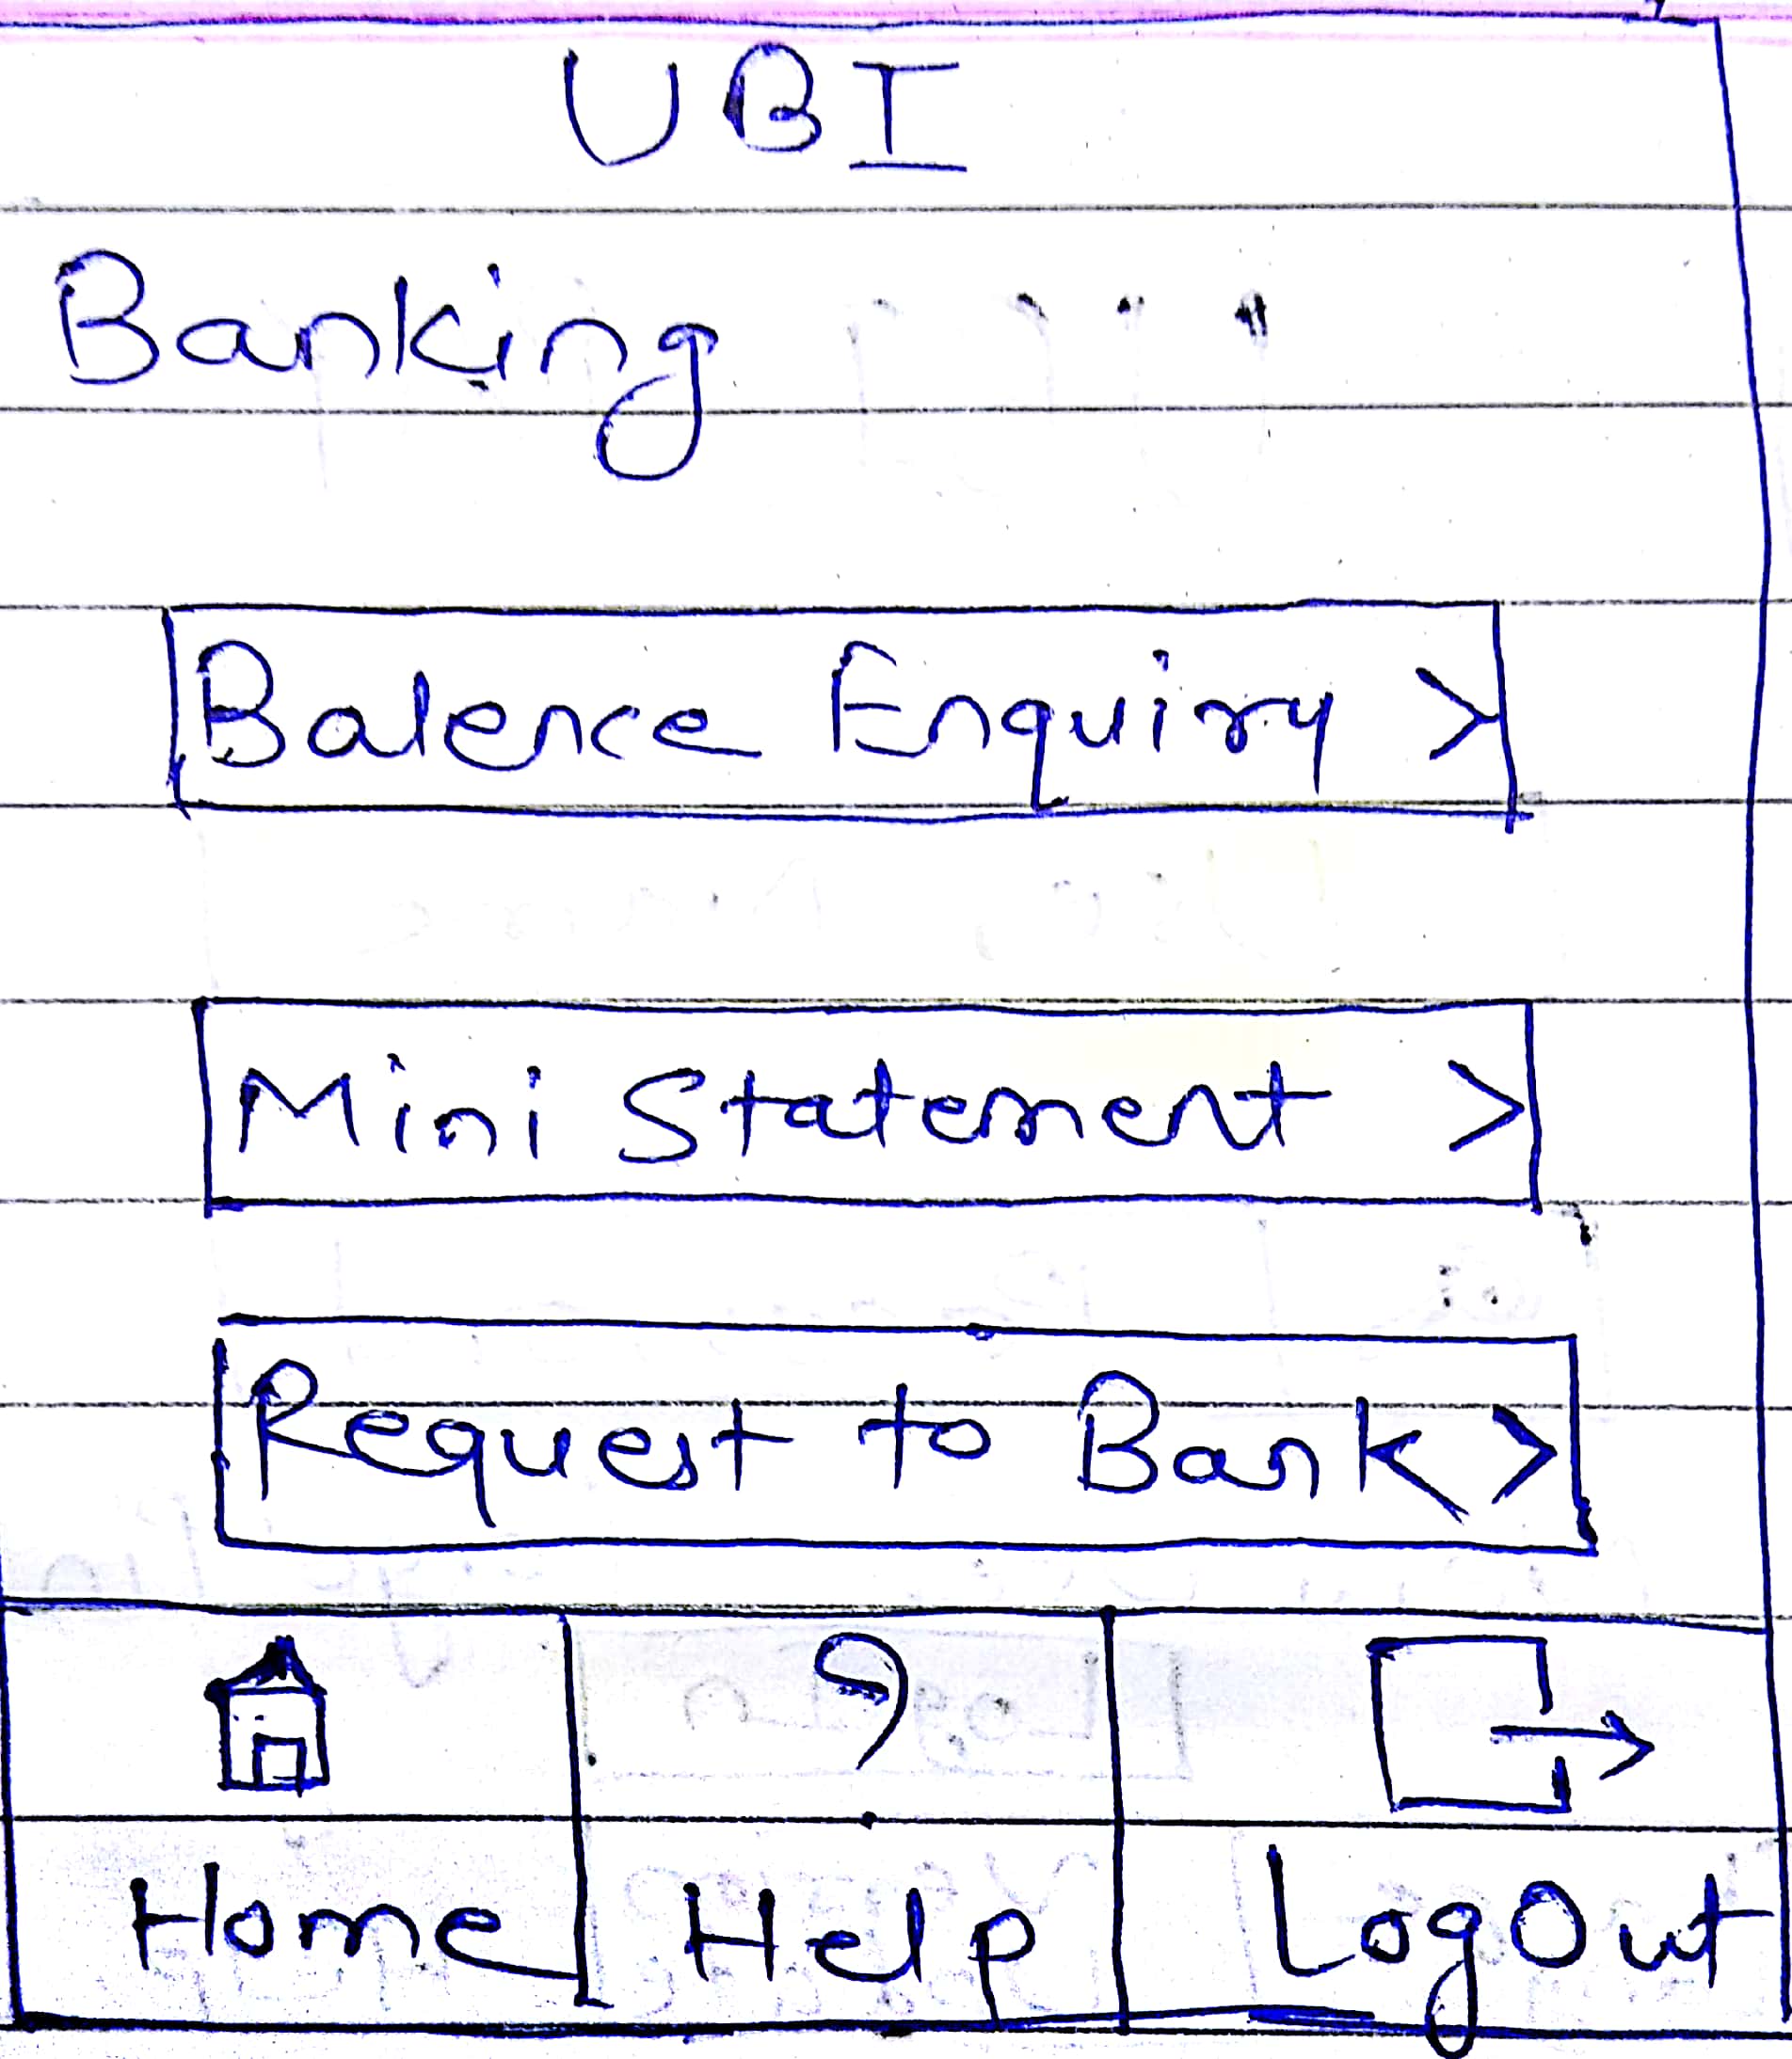 UBI
Banking
Balence Enquiry >
Mini Statement >
Request to Bank >
Home Help LogOut